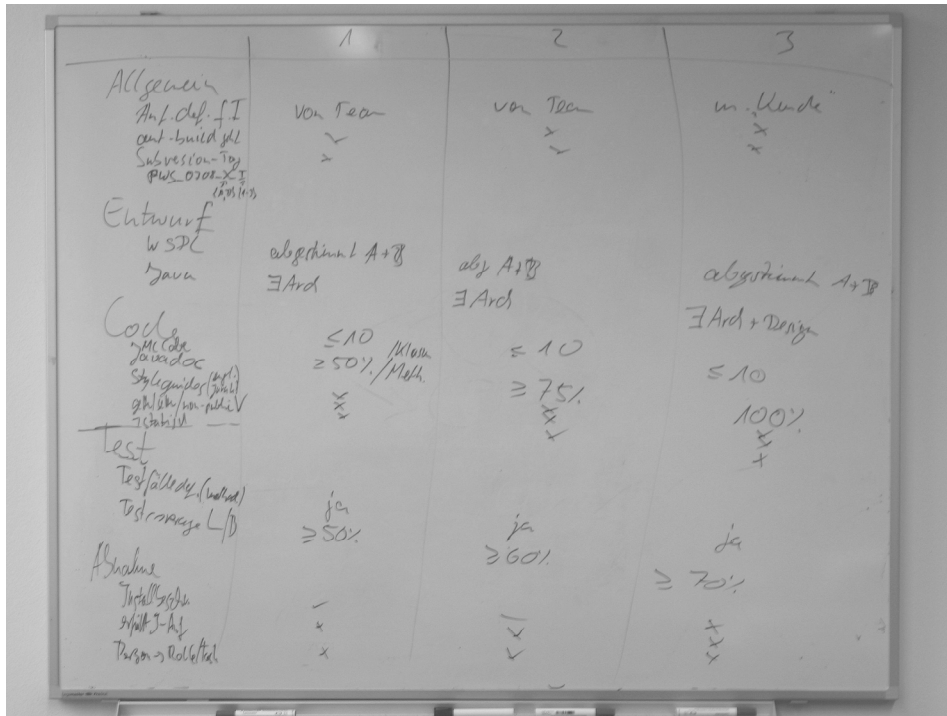 1 2 3
Allgemein
Anf.def. f. I von Team von Team m. Kunde
aut. build x x
Subversion-Tag x x
PWS_0708_X_I
Entwurf
WSDL abgestimmt A+B abg A+B abgestimmt A+B
Java ∃ Arch ∃ Arch ∃ Arch + Design
Code
≤10 /Klasse ≤ 10 ≤ 10
Javadoc ≥50% /Meth. ≥ 75% 100%
Styleguides
/non-public V
Test
Testfälle def. (method) ja ja ja
Testcoverage L/B ≥50% ≥60% ≥ 70%
Abnahme
erfüllt I-Anf x x
Person → Rolle x x